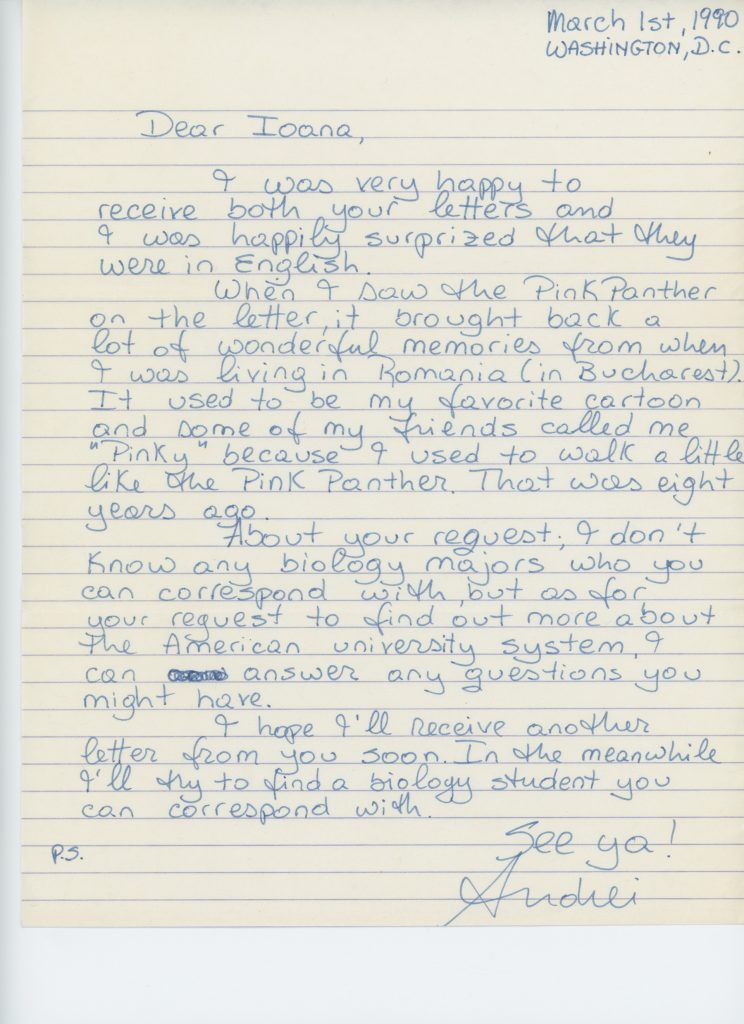 March 1st, 1990
WASHINGTON, D.C.
Dear Ioana,
I was very happy to
receive both your letters and
I was happily surprized that they
were in English.
When I saw the Pink Panther
on the letter, it brought back a
lot of wonderful memories from when
I was living in Romania (in Bucharest).
It used to be my favorite cartoon
and some of my friends called me
"Pinky" because I used to walk a little
like the Pink Panther. That was eight
years ago.
About your request; I don't
know any biology majors who you
can correspond with, but as for
your request to find out more about
the American university system, I
can answer any questions you
might have.
I hope I'll receive another
letter from you soon. In the meanwhile
I'll try to find a biology student you
can correspond with.
See ya!
P.S.
Andrei